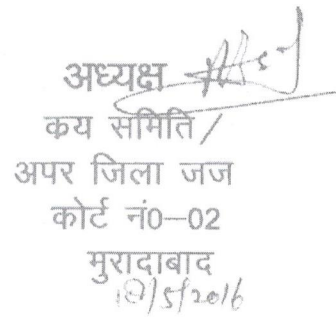 अध्यक्ष
कय समिति/
अपर जिला जज
कोर्ट नं0—02
मुरादाबाद
/5/2016